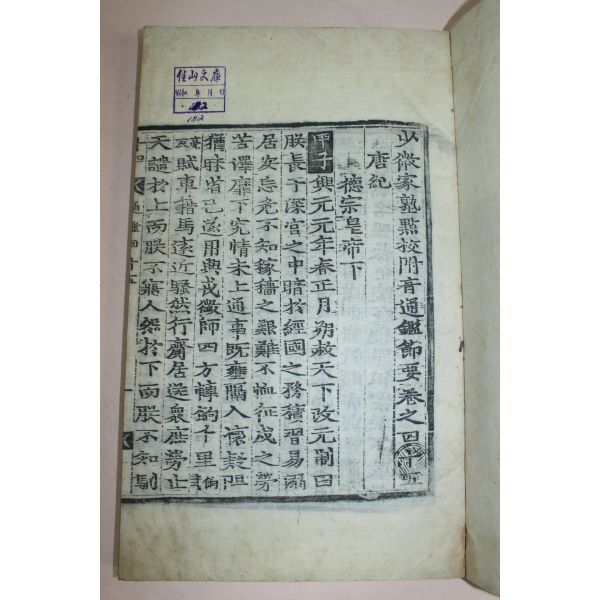 佳山文庫
昭和 年 月 日
182
182
少微家塾點校附音通鑑節要卷之四十五
唐紀
德宗皇帝下
甲子興元元年春正月朔赦天下改元制曰
朕長于深宮之中暗於經國之務積習易溺
居安忘危不知稼穡之艱難不恤征戍之勞
苦澤靡下究情未上通事旣壅隔人懷疑阻
猶昧省己遂用興戎徵師四方轉餉千里
賦車籍馬遠近騷然行齎居送衆庶勞止
天譴於上而朕不寤人怨於下而朕不知馴
通鑑四十五